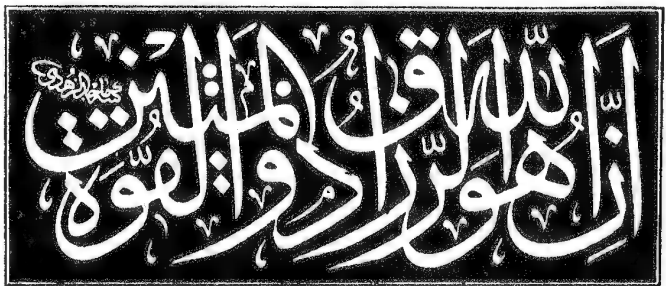 إن الله هو الرزاق ذو القوة المتين